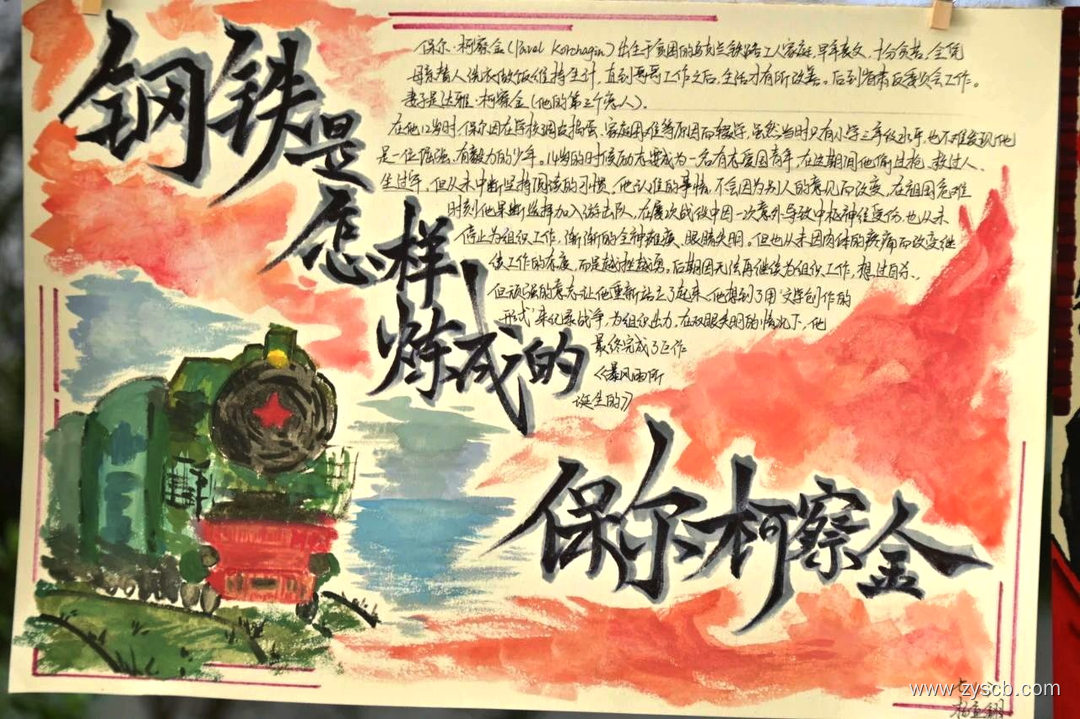 钢铁是
怎样
炼成的
保尔·柯察金(Pavel Korchagin)出生于贫困的乌克兰铁路工人家庭,早年丧父,十分贫苦,全凭
母亲替人洗衣做饭维持生计,直到哥哥工作之后,生活才有所改善。后到省肃反委员会工作。
妻子是达雅·柯察金(他的第三个恋人)。
在他12岁时保尔因在学校调皮捣蛋、家庭困难等原因而辍学,虽然当时只有小学三年级水平,也不难发现他
是一位倔强、有毅力的少年。14岁的时候励志要成为一名有志爱国青年,在这期间他偷过枪、救过人、
生过牢,但从未中断坚持阅读的习惯,他认准的事情,不会因为别人的意见而改变。在祖国危难
时刻他果断选择加入游击队,在屡次战役中因一次意外导致中枢神经受伤,也从未
停止为组织工作,渐渐的全神瘫痪、眼睛失明。但也从未因肉体的疼痛而改变继
续工作的态度,而是越挫越勇。后期因无法再继续为组织工作,想过自杀、
但顽强的意志让他重新站立了起来,他想到了用“文学创作的
形式”来纪录战争,为组织出力,在双眼失明的情况下,他
最终完成了巨作
《暴风雨所
诞生的》
保尔柯察金
www.zyscb.com